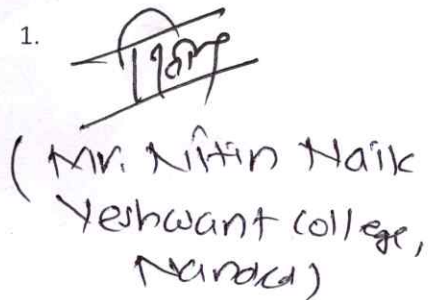 1.
(Mr. Nitin Naik
Yeshwant College,
Nanded)